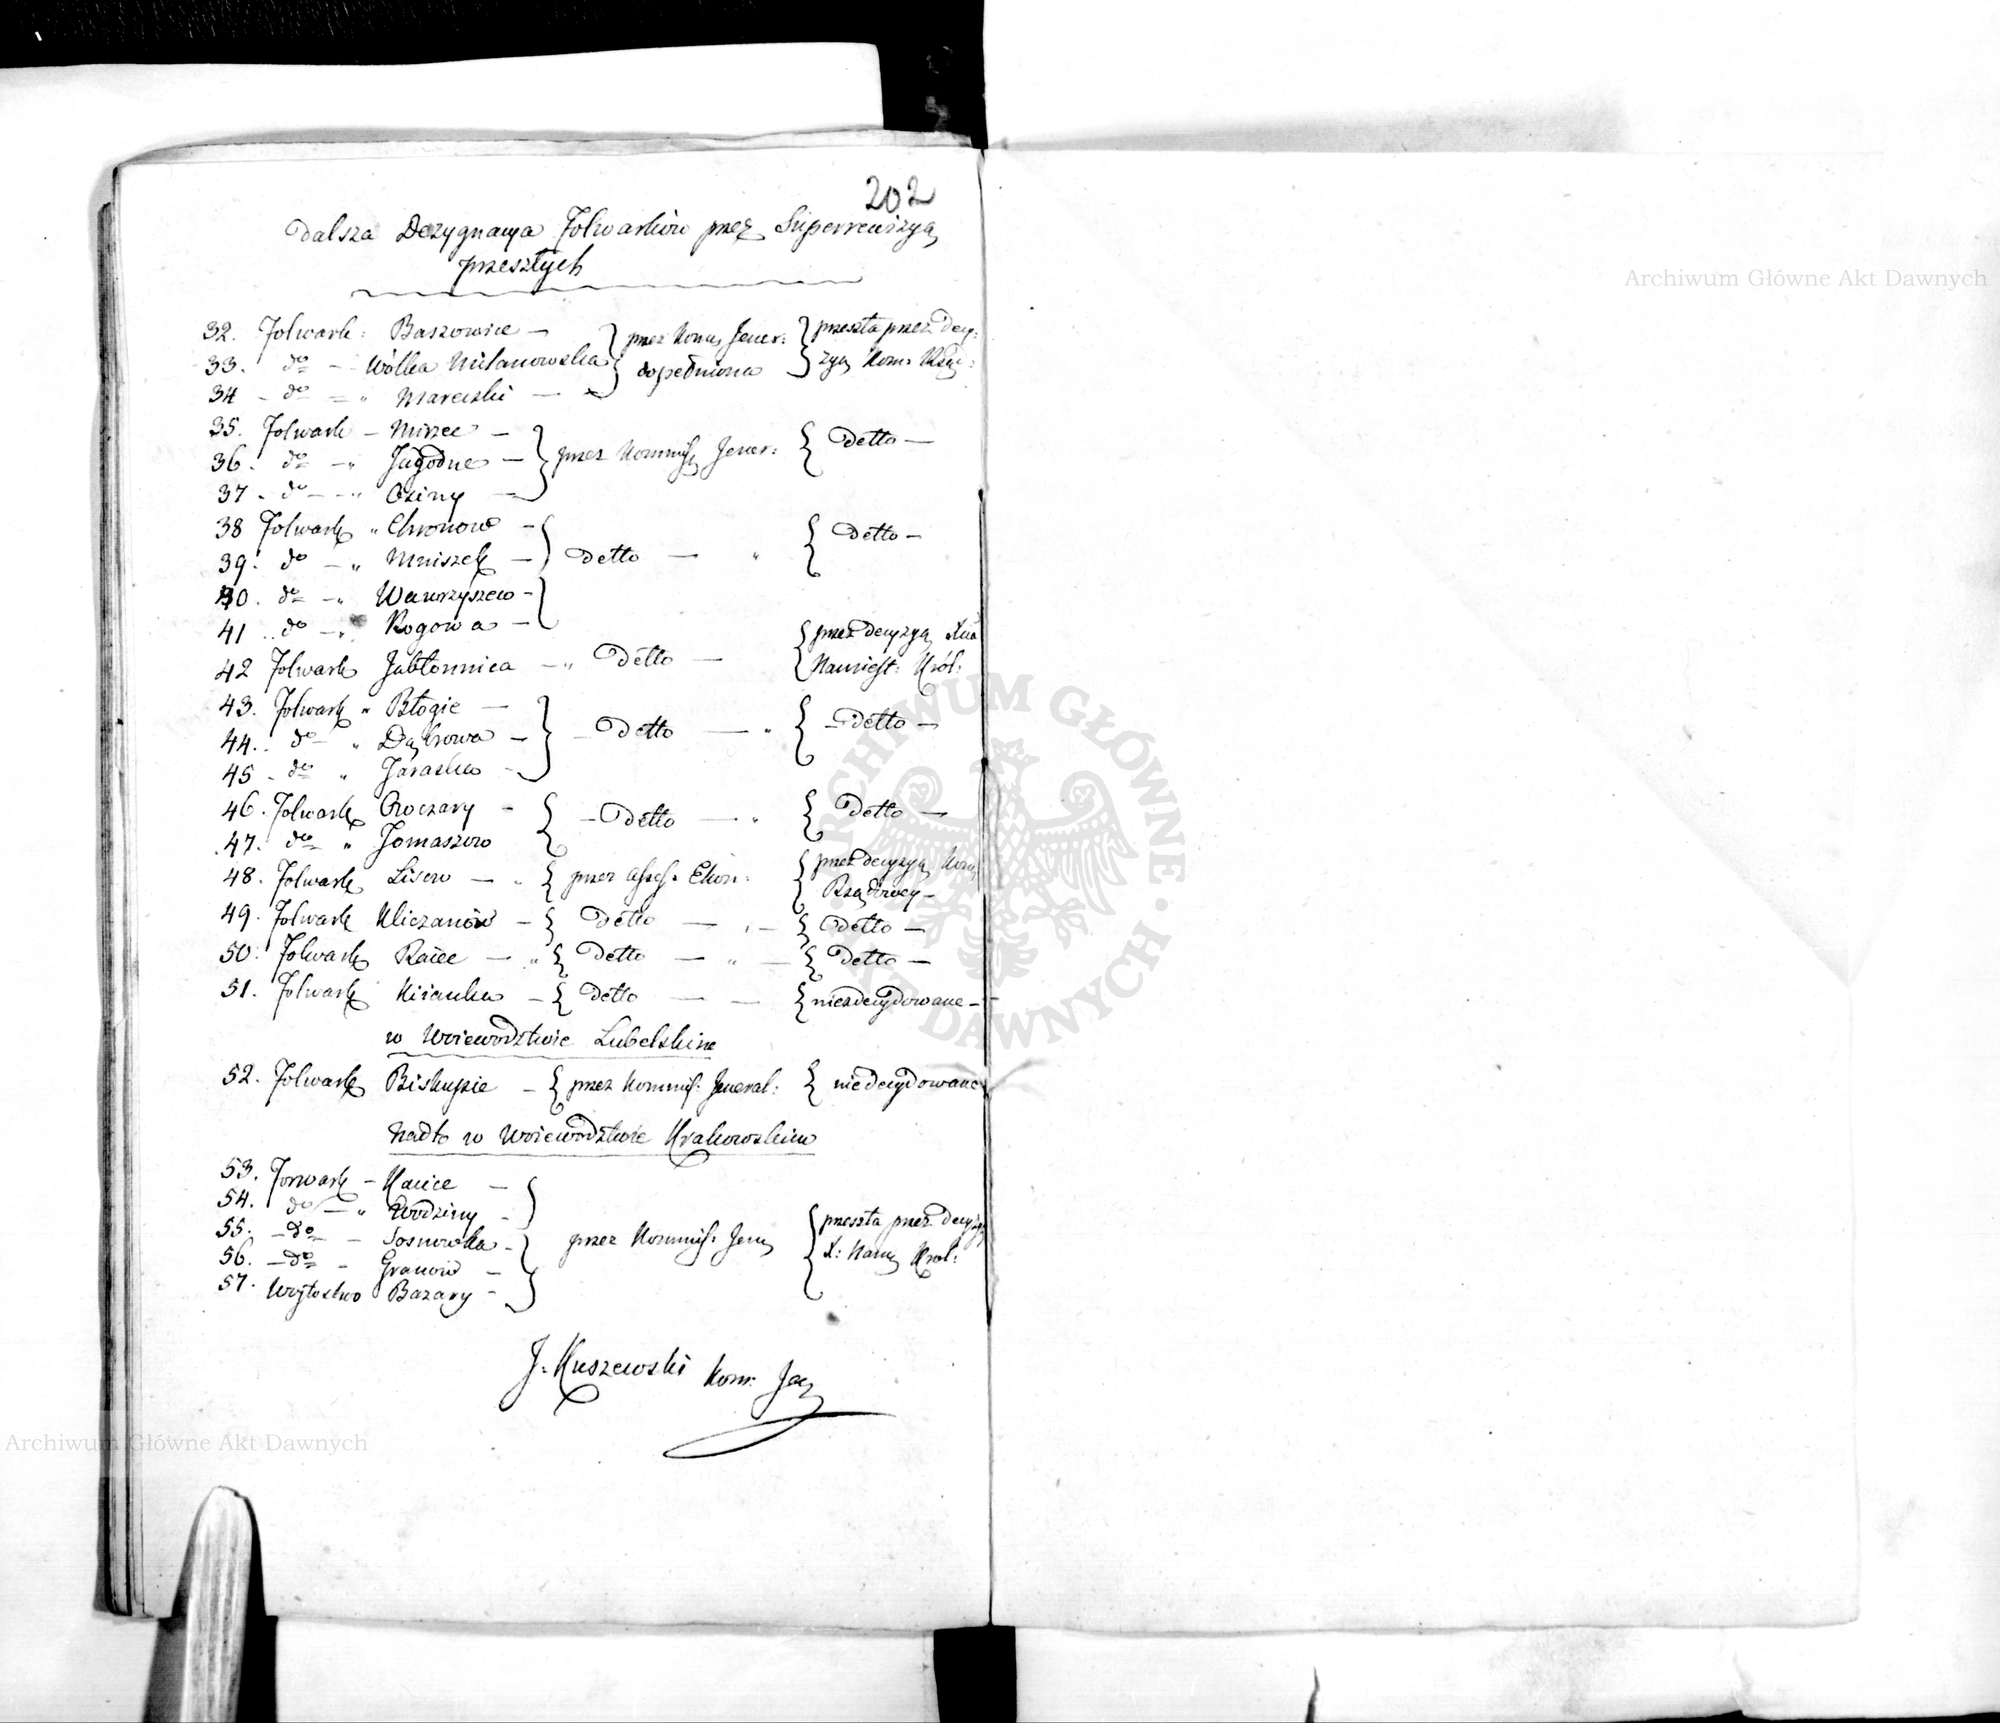 202
Dalsza Dezygnacya Folwarków przez Superrewizyą
przeszłych
32. Folwark: Baszowice — przez Kom. Jener: przeszła przez decy:
33. do — Wólka Milanowska dopełniona zyą Kom. Rząd:
34 - do = " Marciski —
35. Folwark — Mirzec — przez Kommiss Jener: Detto —
36. do — " Jagodne —
37 - do — " Osiny —
38 Folwark " Chronow — Detto — " Detto —
39. do — " Mniszek —
40. do — " Wawrzyszew —
41 .. do — " Rogowa —
42 Folwark Jabłonnica — " Detto — przez decyzyą Xcia
Namiest: Król:
43. Folwark " Błogie — Detto — " — Detto —
44. do — " Dąbrowa —
45 - do " Jaraska —
46. Folwark Owczary — Detto — " Detto —
47. do " Tomaszow
48. Folwark Lisow — " przez Assess. Ekon: przez decyzyą Kom
Rządowey —
49. Folwark Kliczanów — Detto — " — Detto —
50. Folwark Raiec — " Detto — " — Detto —
51. Folwark Kisanka — Detto — — niezdecydowane —
w Woiewodztwie Lubelskim
52. Folwark Biskupie — przez Kommiss: Jeneral: niedecydowane
Nadto w Woiewodztwie Krakowskim
53. Forwark — Kacice —
54. do — " Wodziny — przeszła przez decyzy
55. — do — Sosnowka — przez Kommiss: Jen
56. — do — Granow — X: Nam Krol:
57. Woytostwo Bazary —
J. Kuszewski Kom. Jen
Archiwum Główne Akt Dawnych
Archiwum Główne Akt Dawnych
ARCHIWUM GŁÓWNE AKT DAWNYCH